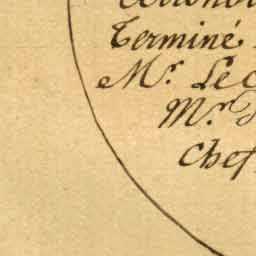 Terminé
Mr. Lec
Mr.
Chef